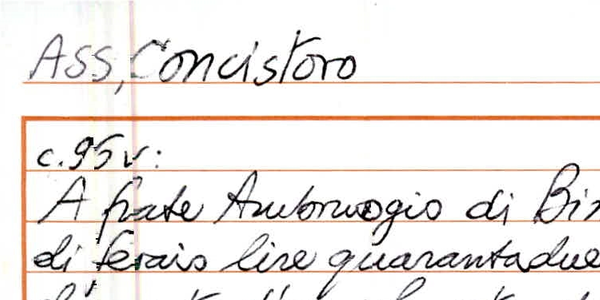 ASS, Concistoro
c. 95v:
A frate Ambruogio di
di ferais lire quarantadue